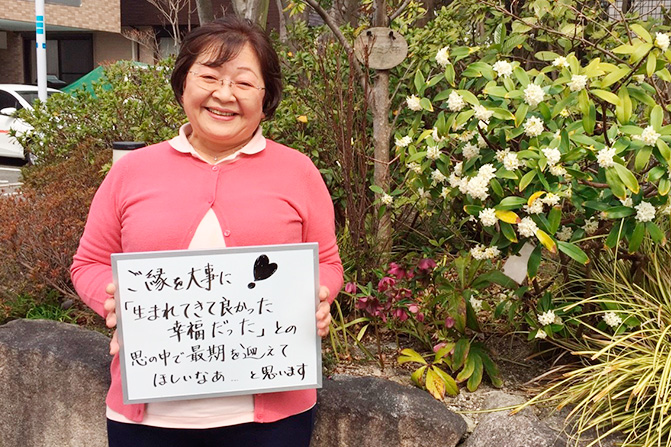 ご縁を大事に
「生まれてきて良かった
幸福だった」との
思の中で最期を迎えて
ほしいなあ…と思います